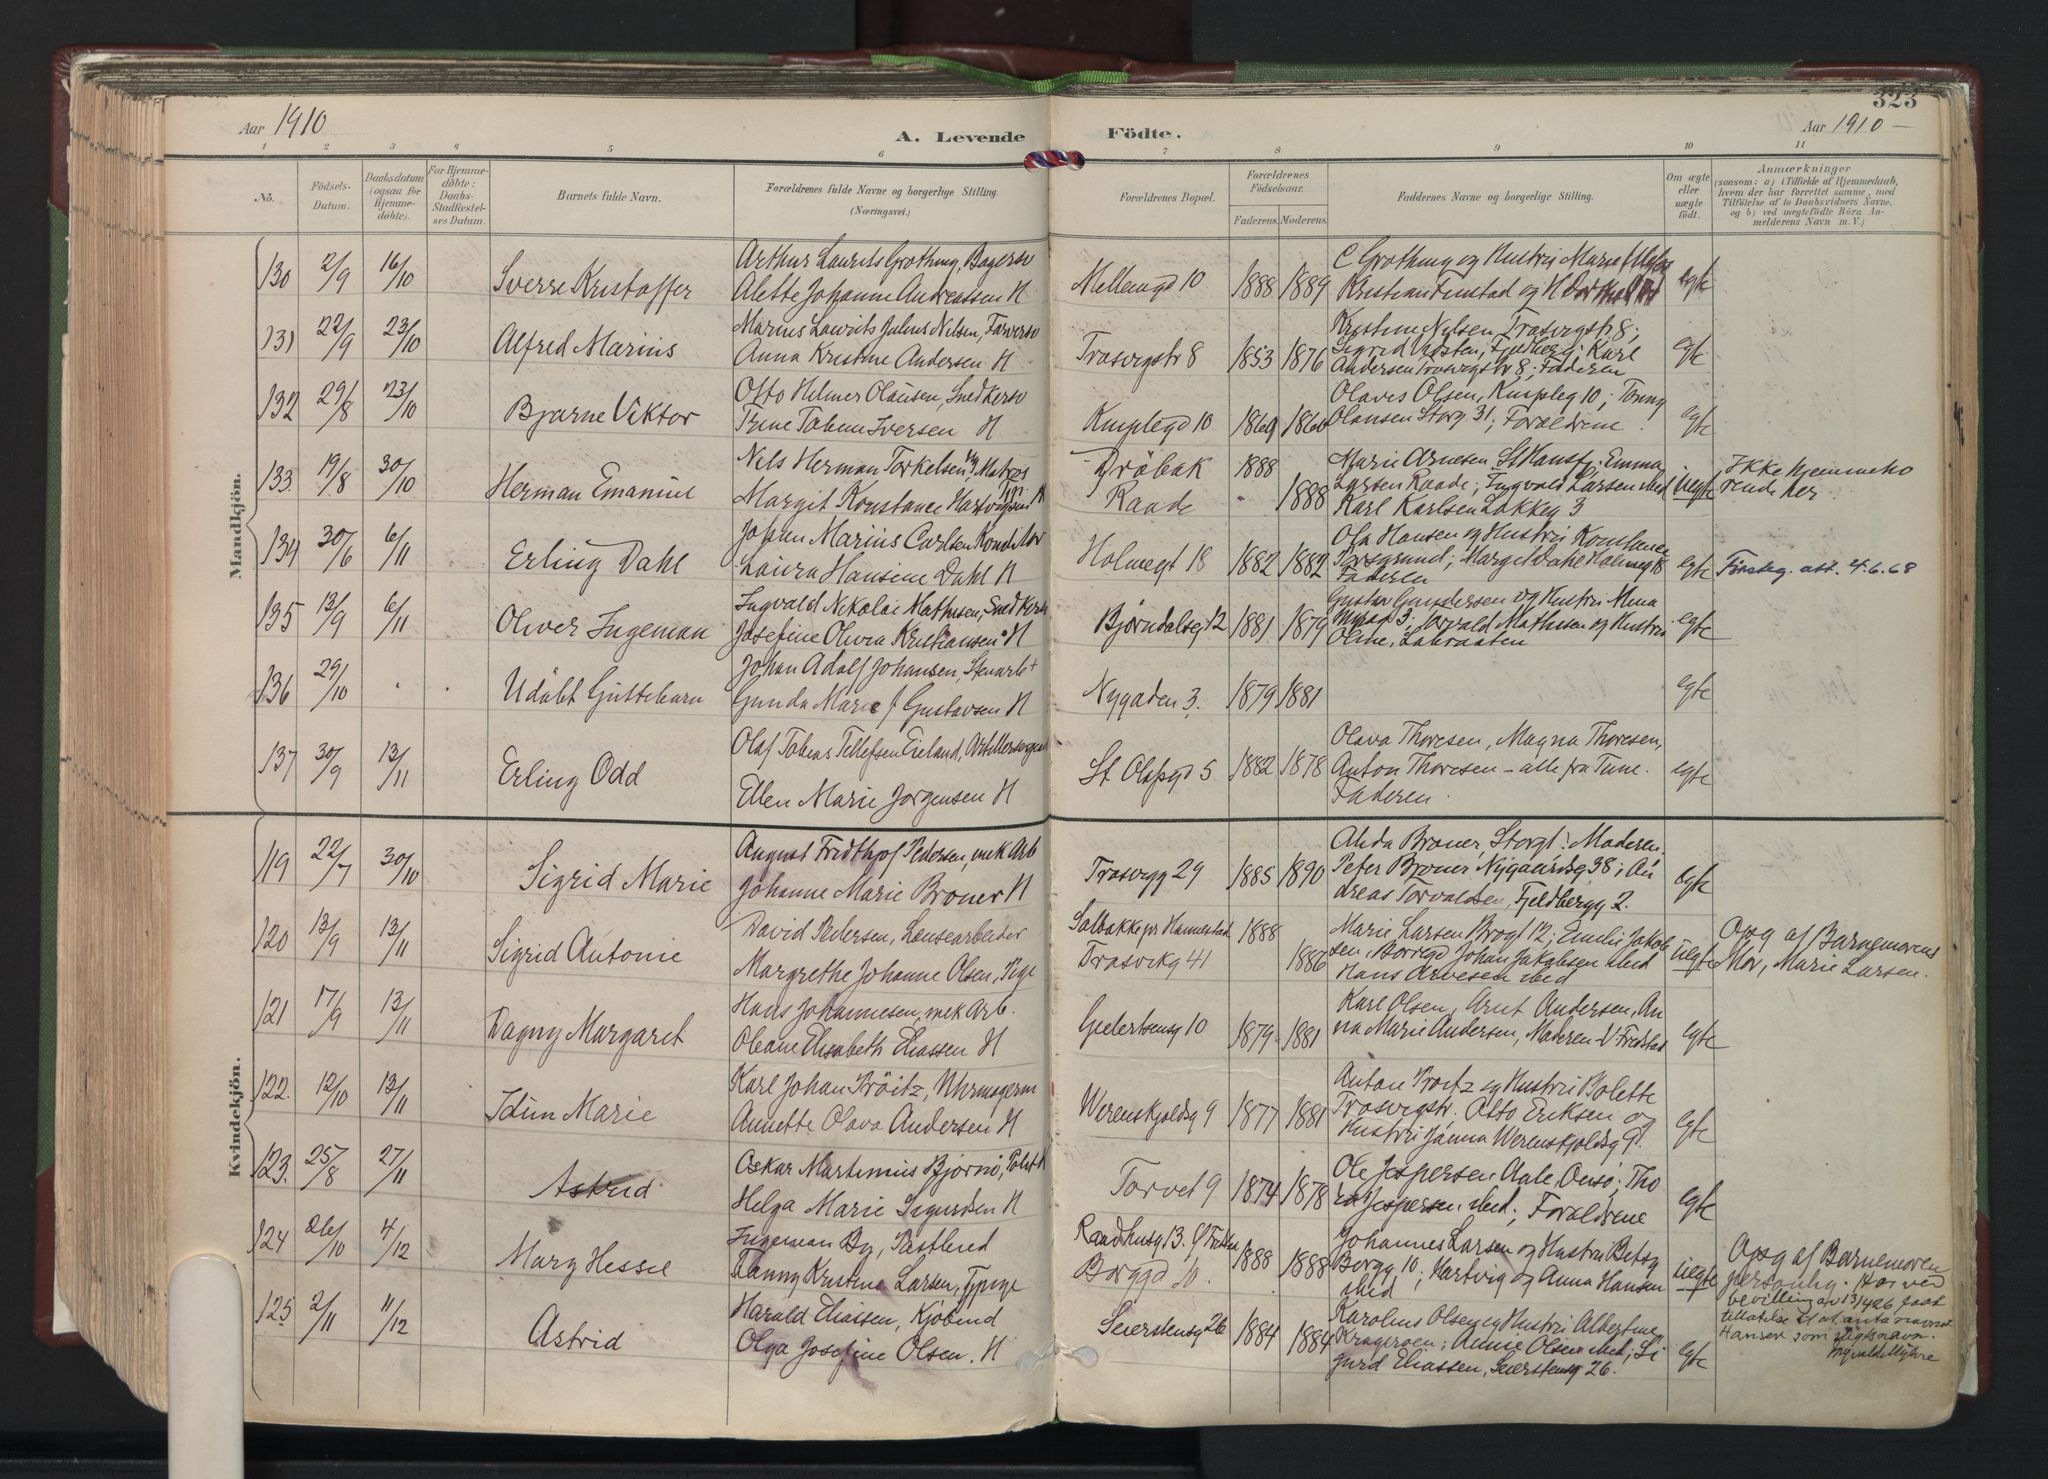 323
Aar 1910
A. Levende Födte.
Aar 1910 —
1 2 3 4 5 6 7 8 9 10 11
No.
Födsels-Datum.
Daabsdatum (ogsaa for Hjemme-döbte).
For Hjemme-döbte: Daabs-Stadfæstelses Datum.
Barnets fulde Navn.
Forældrenes fulde Navne og borgerlige Stilling.
(Næringsvei.)
Forældrenes Bopæl.
Forældrenes Födselsaar.
Faderens. Moderens.
Faddernes Navne og borgerlige Stilling.
Om ægte eller uægte födt.
Anmærkninger
(saasom: a) i Tilfælde af Hjemmedaab, hvem der har forrettet samme, med Tilföielse af to Daabsvidners Navne, og b) ved uægtefödte Börn Anmelderens Navn m. V.)
Mandkjön.
130 2/9 16/10 Sverre Kristoffer
Arthur Laurits Grothing, Bagersv
Alette Johanne Andreassen H
Mellemgd 10 1888 1889
C Grothing og Hustru Marie
Kristian Finstad og H
egte
131 22/9 23/10 Alfred Marius
Marius Laurits Julius Nilsen, Farversv
Anna Kristine Andersen H
Trosvigstr 8 1853 1876
Kristine Nylsen Trosvigstr 8;
Sigrid Fjeldberg; Karl
Andersen Trosvigstr 8; Faderen
egte
132 29/8 23/10 Bjarne Viktor
Otto Helmer Olausen, Snedkersv
Trine Tobine Iversen H
Kirplegd 10 1869 1860
Olaves Olsen, Kirpleg 10; Tonny
Olausen Storg 31; Forældrene
egte
133 19/8 30/10 Herman Emanuel
Nils Herman Torkelsen, Matros
Margit Konstance Hartvigsen
Drøbak 1888
Raade 1888
Marie Arnesen St Hansf; Emma
Larsen Raade; Ingvald Larsen ibid
Karl Karlsen Lökkeg 3
uegte
Ikke hjemmeho
rende her.
134 30/6 6/11 Erling Dahl
Johan Marius Carlsen Konditor
Laura Hansine Dahl H
Holmegt 18 1882 1882
Ola Hansen og Hustru Konstance
Porsgrund; Margit Dahl Holmegt 18
Faderen
egte
Föresteg. att. 4.6.68
135 13/9 6/11 Oliver Ingeman
Ingvald Nikolai Mathisen, Snedker
Josefine Olivia Kristiansen H
Björndalsg 12 1881 1879
Gustav Gundersen og Hustru Mina
3; Mathisen og Hustru
Oline, Labraaten
egte
136 29/10 Udöbt Guttebarn
Johan Adolf Johansen, Stenarb
Gunda Marie f Gustavsen H
Nygaden 3. 1879 1881
egte
137 30/9 13/11 Erling Odd
Olaf Tobias Tellefsen Eieland, Artillerisergeant
Ellen Marie Jørgensen H
St Olafsgd 5 1882 1878
Olava Thoresen, Magna Thoresen,
Anton Thoresen – alle fra Tune.
Faderen.
egte
Kvindekjön.
119 22/7 30/10 Sigrid Marie
August Fridthjof Pedersen, mek Arb
Johanne Marie Broner H
Trosvigg 29 1885 1890
Broner, Storgt; Moderen.
Peter Broner Nygaardsg 38; An
dreas Torvaldsen, Fjeldbergg 2.
egte
120 13/9 13/11 Sigrid Antonie
David Pedersen, Lensearbeider
Margrethe Johanne Olsen, Pige
Solbakke pr Hannestad 1888
Trosvikg 41 1886
Marie Larsen Brogt 12; Emilie Jakob
sen, Borregd Johan Jakobsen ibid
Hans Arvesen ibid
uegte
Opg af Barnemorens
Mor, Marie Larsen.
121 17/9 13/11 Dagny Margaret
Hans Johannesen, mek Arb.
Oleane Elisabeth Eliassen H
Geelertsensg 10 1879 1881
Karl Olsen, Arnt Andersen, An
na Marie Andersen, Moderen – V Fredstad
egte
122. 12/10 13/11 Idun Marie
Karl Johan Pröitz, Uhrmagerm
Annette Olava Andersen H
Werenskjoldsg 9 1877 1881
Anton Proitz og Hustru Bolette
Trosvigstr. Otto Eriksen og
Hustru Janna Werenskjoldsg 9.
egte
123. 25/8 27/11 Astrid
Oskar Martinius Björnö, Politik
Helga Marie Sigurdsen H
Torvet 9 1874 1878
Ole Jespersen Aale Onsö; Tho
Jespersen ibid.; Forældrene
egte
124 26/10 4/12 Mary Hessel
Ingeman By, Pastbud
Fanny Kristine Larsen, Tjpige
Raadhusg 13. 1888
Borggd 10. 1888
Johannes Larsen og Hustru Betsy
Borgg 10; Hartvig og Anna Hansen
ibid
uegte
Opg af Barnemoren
personlig. Har ved
bevilling av 13/4 26 faat
tillatelse til at anta navnet
Hansen som slegtsnavn.
125 2/11 11/12 Astrid
Harald Eliassen, Kjöbmd
Olga Josefine Olsen. H
Seierstensg 26 1884 1884
Karolius Olsen og Hustru Albertine
Krageroen; Annie Olsen ibid; Si
gurd Eliassen, Seierstensg 26.
egte